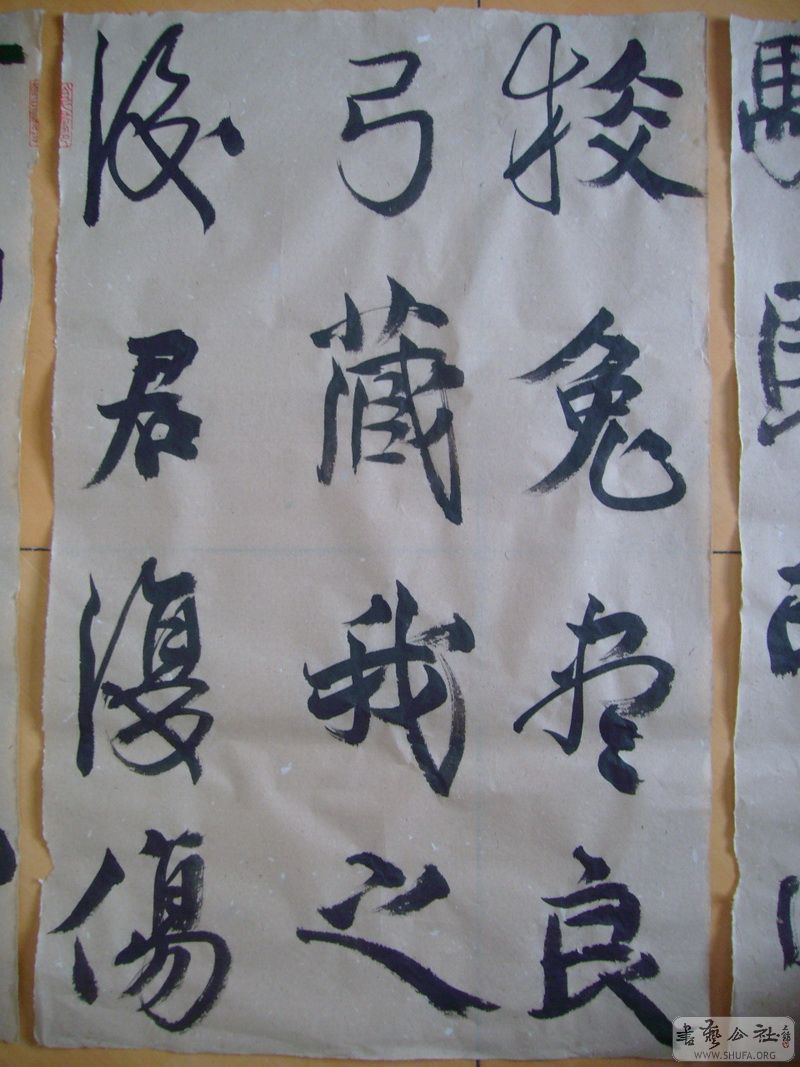 狡兔尽良
弓藏我之
後君復傷
書藝公社
WWW.SHUFA.ORG